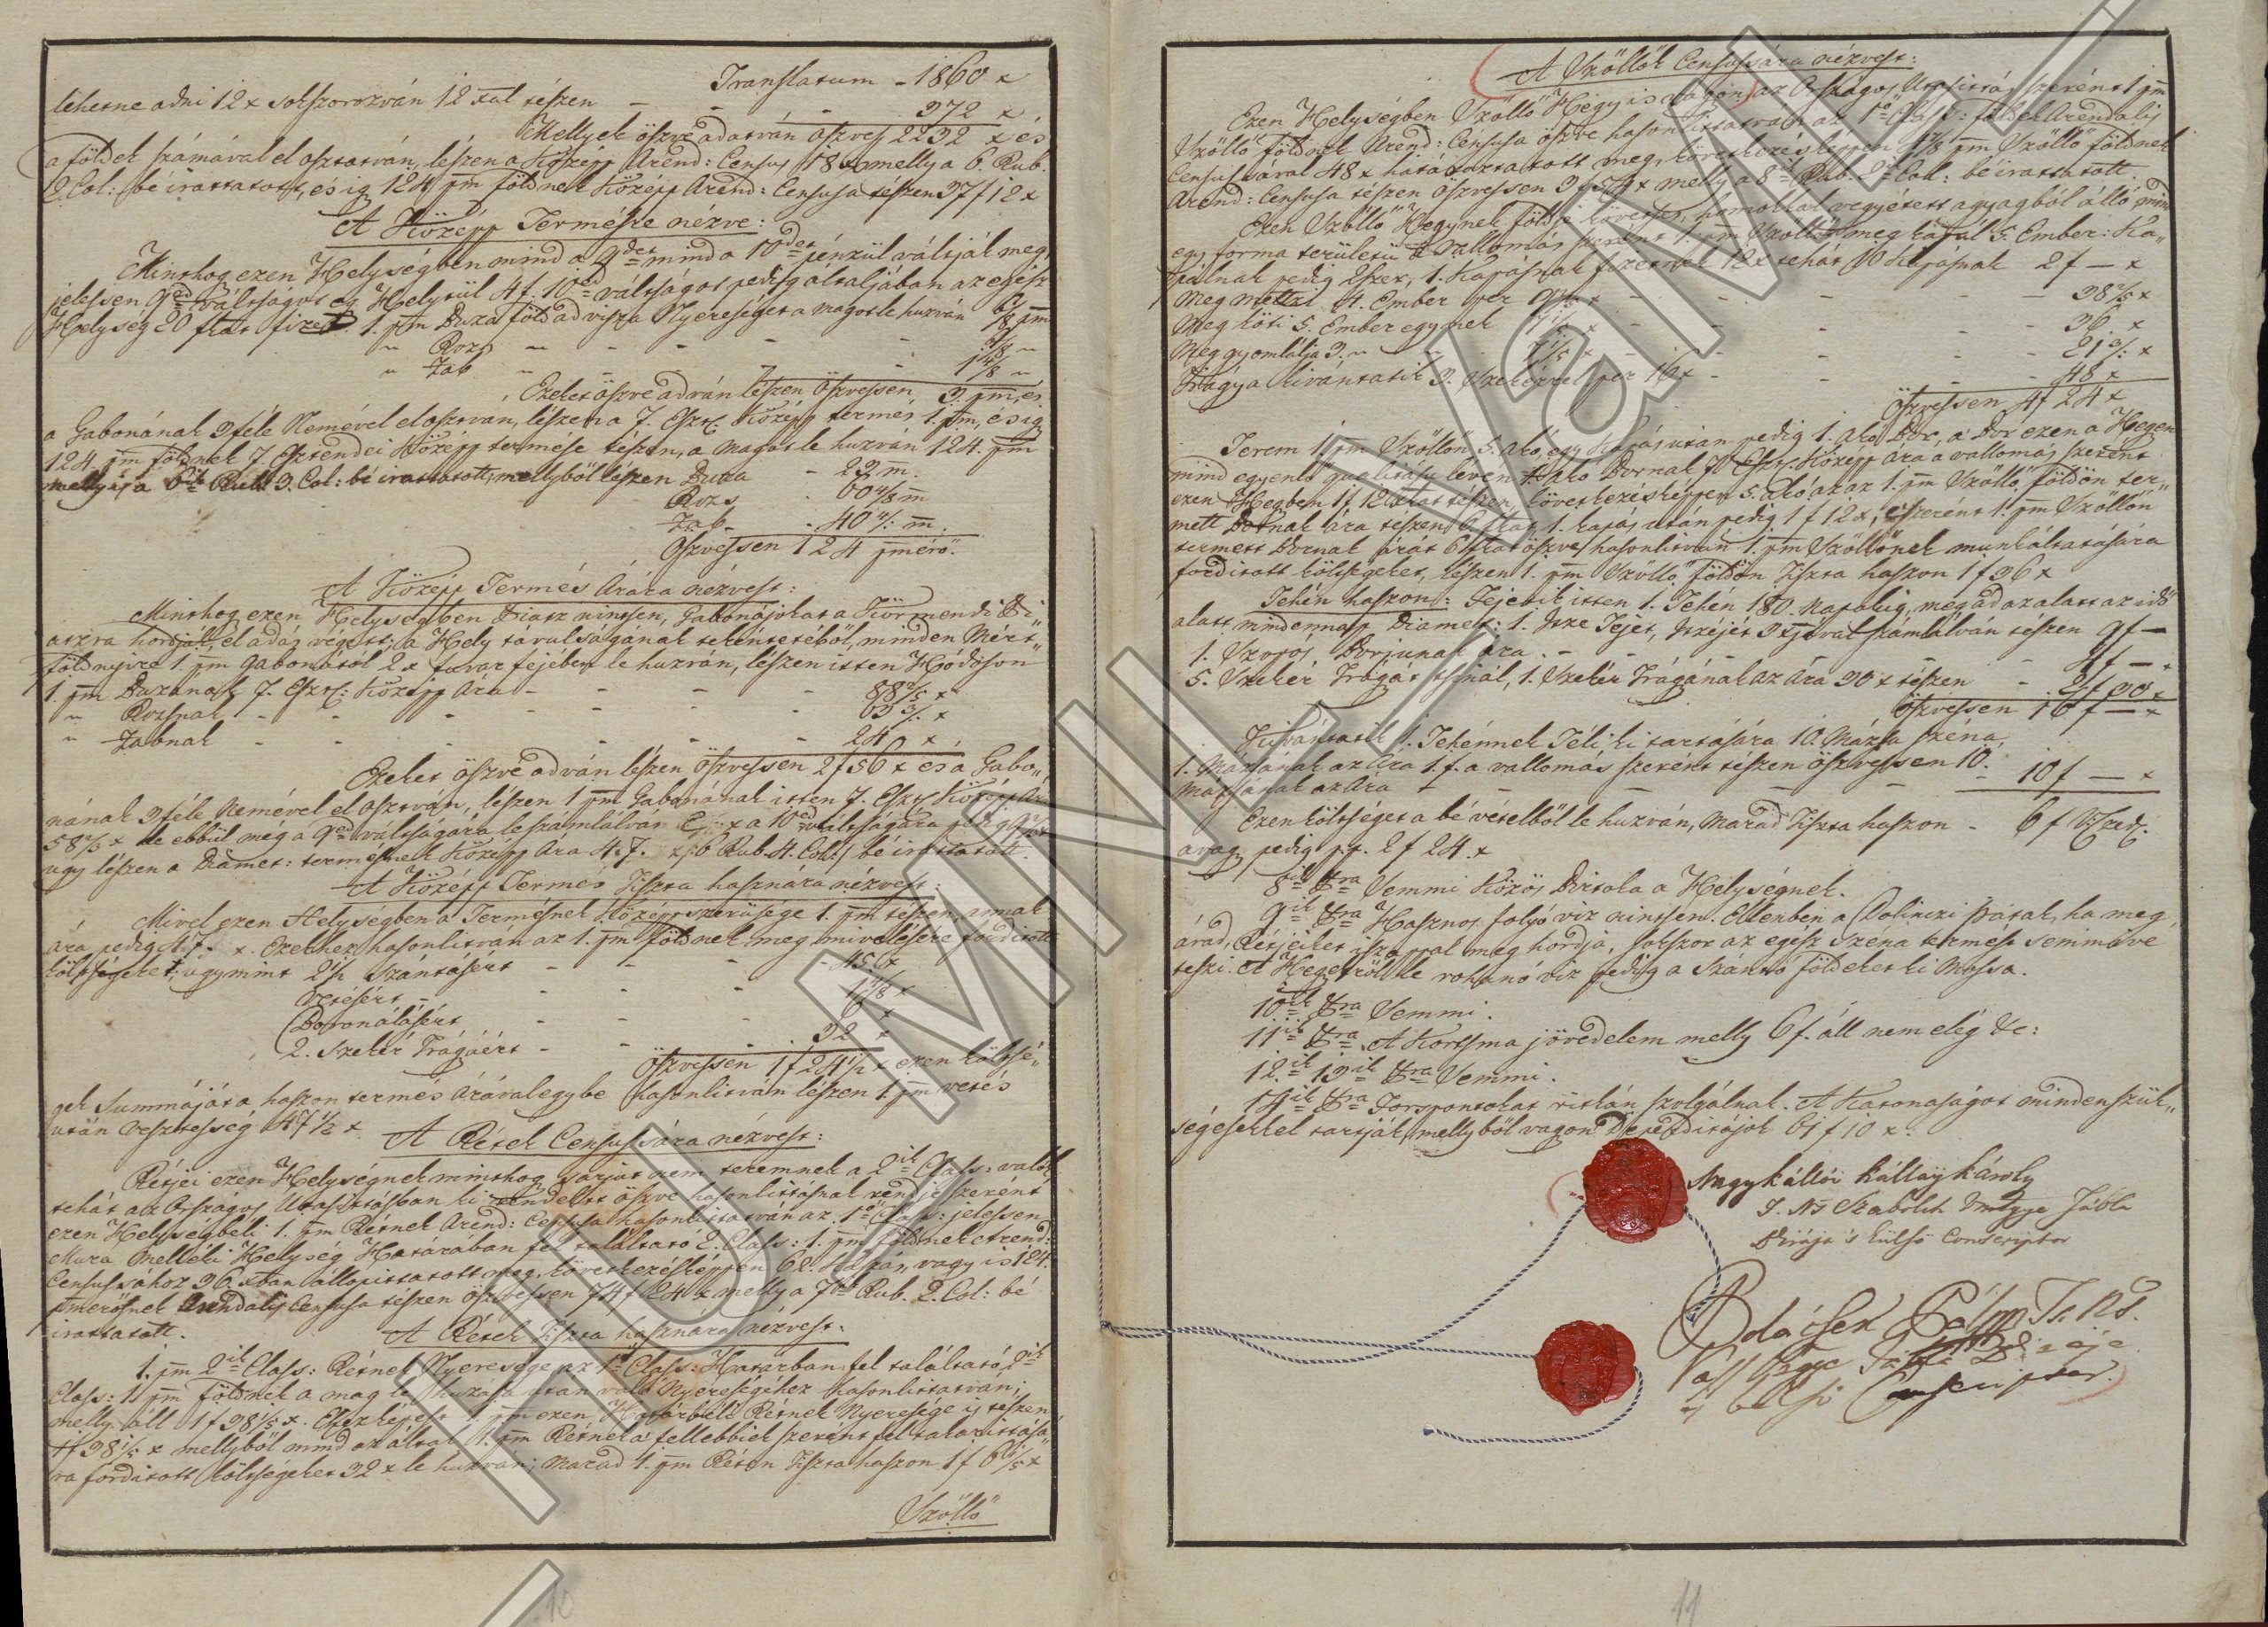 Translatum - 1860 x
lehetne adni 12 x sokszorozván 12 xal tészen - - - 372 x
Mellyek öszve adatván öszves 2232 x és
a földek számával el osztatván, lészen a Középp Arend: Census 18 x melly a 6. Rub.
2. Col: bé irattatott, és ig 124 pm földnek Középp Arend: Censusa tészen 37 f 12 x
A Középp Termésre nézve:
Minthog ezen Helységben mind a 9det mind a 10det pénzül váltják meg,
jelessen 9ed váltságot eg Helytül 4 f. 10ed váltságot pedig altaljában az egész
Helység 20 ftat fizet 1. pm Buza föld ad vissza Nyereséget a magot le huzván 6/8 pm
" Rozs " - - - - "
" Zab " - - - 1 4/8 "
Ezeket öszve adván lészen öszvessen 3. pm, és
a Gabonának 3 féle Nemével elosztván, lészen a 7. Eszt: Középp termés 1. pm, és ig
124. pm földnek 7 Esztendei Középp termése tészen, a magot le huzván 124. pm
melly is a 6ik Rub. 3. Col: bé irattatott, mellyböl lészen Buza - 23 m.
Rozs - 60 4/8 m
Zab - 40 4/8 m.
Öszvessen 124 pmérö.
A Középp Termés Árára nézvést:
Minthog ezen Helységben Piatz nintsen, Gabonájokat a Körmendi Pi„
atzra hordják, el adás végett; a Hely távulságának tekéntetéböl, minden Mért„
föld nyire 1. pm gabonátol 2 x fuvar fejében le huzván, lészen itten Hódoson
1. pm Buzának 7. Eszt: Középp Ára - - - - 88 2/5 x
" Rozsnak - - - - - 63 3/5 x
" Zabnak - - - - - 24 x
Ezeket öszve adván lészen öszvessen 2 f 56 x és a Gabo„
nának 3 féle Nemével el osztván, lészen 1 pm Gabonának itten 7. Eszt Középp Ára
58 2/3 x de ebbül meg a 9ed váltságára le számlálván x a 10ed váltságára
ugy lészen a Diamet: termésnek Középp Ára 47. x 6 Rub. 4. Col: bé irattatott.
A Középp Termés Tiszta hasznára nézvest:
Mivel ezen Helységben a Termésnek Középp szerüsége 1. pm tészen, annak
ára pedig 47. x. Ezekhez hasonlitván az 1. pm földnek meg mivelésére forditott
költségeket, ugymint 2 1/2 Szántásért - - - 45. x
Vetésért - - - 1 4/8 x
Boronálásért - - - 6 x
2. Szekér Trágyáért - - - 32 x
Öszvessen 1 f 24 1/2 x ezen költsé„
gek Summáját a haszon termés Árával egybe hasonlitván lészen 1. pm vetés
után vesztesség 47 1/2 x
A Rétek Censussára nézvest:
Rétjei ezen Helységnek minthog sarjut nem teremnek a 2ik Class: valók
tehát az Országos Utasitásban ki rendeltt öszve hasonlitásnak rendje szerént
ezen Helységbéli 1. pm Rétnek Arend: Censusa hasonlitatván az 1ö Class: jelessen
Mura Melléki Helység Határában fel találtató 2. Class: 1. pm földnek Arend:
Censussahoz 36 xban állapittatott meg, következésképpen 62. Kaszás, vagy is 124.
pmerösnek Arendalis Censusa tészen öszvessen 74 f 24 x melly a 7ik Rub. 2. Col: bé
irattatott.
A Rétek Tiszta hasznára nézvést:
1. pm 2ik Class: Rétnek Nyeresége az 1ö Class: Határban fel találtató 2ik
Class: 1. pm földnek a mag le huzása után való Nyereségéhez hasonlittatván,
melly áll 1 f 38 1/5 x. Ehezképest 1. pm ezen Határbéli Rétnek Nyeresége is tészen
1 f 38 1/5 x mellyböl mind az által 1. pm Rétnek a fellebbiek szerént fel takarittásá„
ra forditott költségeket 32 x le huzván, marad 1. pm Réten Tiszta haszon 1 f 6 1/5 x
Szöllö
A Szöllök Censussára nézvest:
Ezen Helységben Szöllö Hegy is vagyon, az Országos Utasitás szerént 1 pm
Szöllö földnek Arend: Censusa öszve hasonlittatván az 1ö Class: földek Arendalis
Censussával 48 x határoztatott meg, következésképpen 4 7/8 pm Szöllö földnek
Arend: Censusa tészen öszvessen 3 f 54 x melly a 8ik Rub. 2ik Col: bé irattatott.
Ezen Szöllö Hegynek földje követses, homokkal vegyétett agyagból álló, mind
egy forma területü a vallomás szerént 1. pm Szöllöt meg kapál 5. Ember: Ka„
pálnak pedig 2szer, 1. Kapásnak fizetnek 12 x tehát 10 Kapásnak 2 f — x
Meg mettzi 4. Ember per 9 3/5 x - - - - 38 2/5 x
Meg köti 5. Ember egynek 7 1/5 x - - - - 36. x
Meg gyomlálja 3. " - 7 1/5 x - - - - 21 3/5 x
Trágya kivántatik 3. Szekérrel per 16 x - - - 48 x
Öszvessen 4 f 24 x
Terem 1. pm Szöllön 5. akó, egy Kapás után pedig 1. akó Bor, a Bor ezen a Hegen
mind egyenlö qualitásu lévén 1. akó Bornak 7. Eszt: Középp Ára a vallomás szerént
ezen Hegben 1 f 12 xkat tészen, következésképpen 5. akó az az 1. pm Szöllö földön ter„
mett Bornak ára tészen 6. ftat 1. kapás után pedig 1 f 12 x, eszerént 1. pm Szöllön
termett Bornak árát 6 ftat öszve hasonlitván 1. pm Szöllönek munkáltatására
forditott költségeket, lészen 1. pm Szöllö földön Tiszta haszon 1 f 36 x
Tehén haszon: Fejetik itten 1. Tehén 180. Napokig, meg ád az alatt az idö
alatt mindennap Diamet: 1. Itze Tejet, Itzéjét 3 xjával számlálván tészen 9 f —
1. Szopós Borjunak ára - - - - 4 f — .
5. Szekér Trágyát tsinál, 1. Szekér Trágyának az Ára 30 x tészen - 2 f 30 x
Öszvessen 16 f — x
Kivántatik 1. Tehénnek Téli ki tartására 10. Mázsa széna,
1. Mázsának az Ára 1. f. a vallomás szerént tészen öszvessen 10.
Mázsának az Ára - - - - 10 f — x
Ezen költséget a bé vételböl le huzván, marad Tiszta haszon - 6 f
avag pedig p.p. 2 f 24. x
8ik Xra Semmi Közös Birtoka a Helységnek.
9ik Xra Hasznos folyó viz nintsen. Ellenben a Dolinczi pátak, ha meg
árad, Rétjeiket iszappal meg hordja, sokszor az egész Széna termést semmivé
teszi. A Hegekröl le rohanó viz pedig a Szántó földeket ki mossa.
10ik Xra Semmi.
11ik Xra A Kortsma jövedelem melly 6 f. áll nem elég &c:
12ik 13ik Xra Semmi.
14ik Xra Forspontokat ritkán szolgálnak. A Katonaságot minden szük„
ségesekkel tartják, mellyböl vagon Deperditájok 61 f 10 x.
Nagy kállói Kállay Károly
T. Ns Szabolch Vmegye Tábla
Birája 's külsö Conscriptor
Bolácsek Pál T. Ns.
Vass Vgye Tábla Birája
és belsö Conscriptor.
10
11